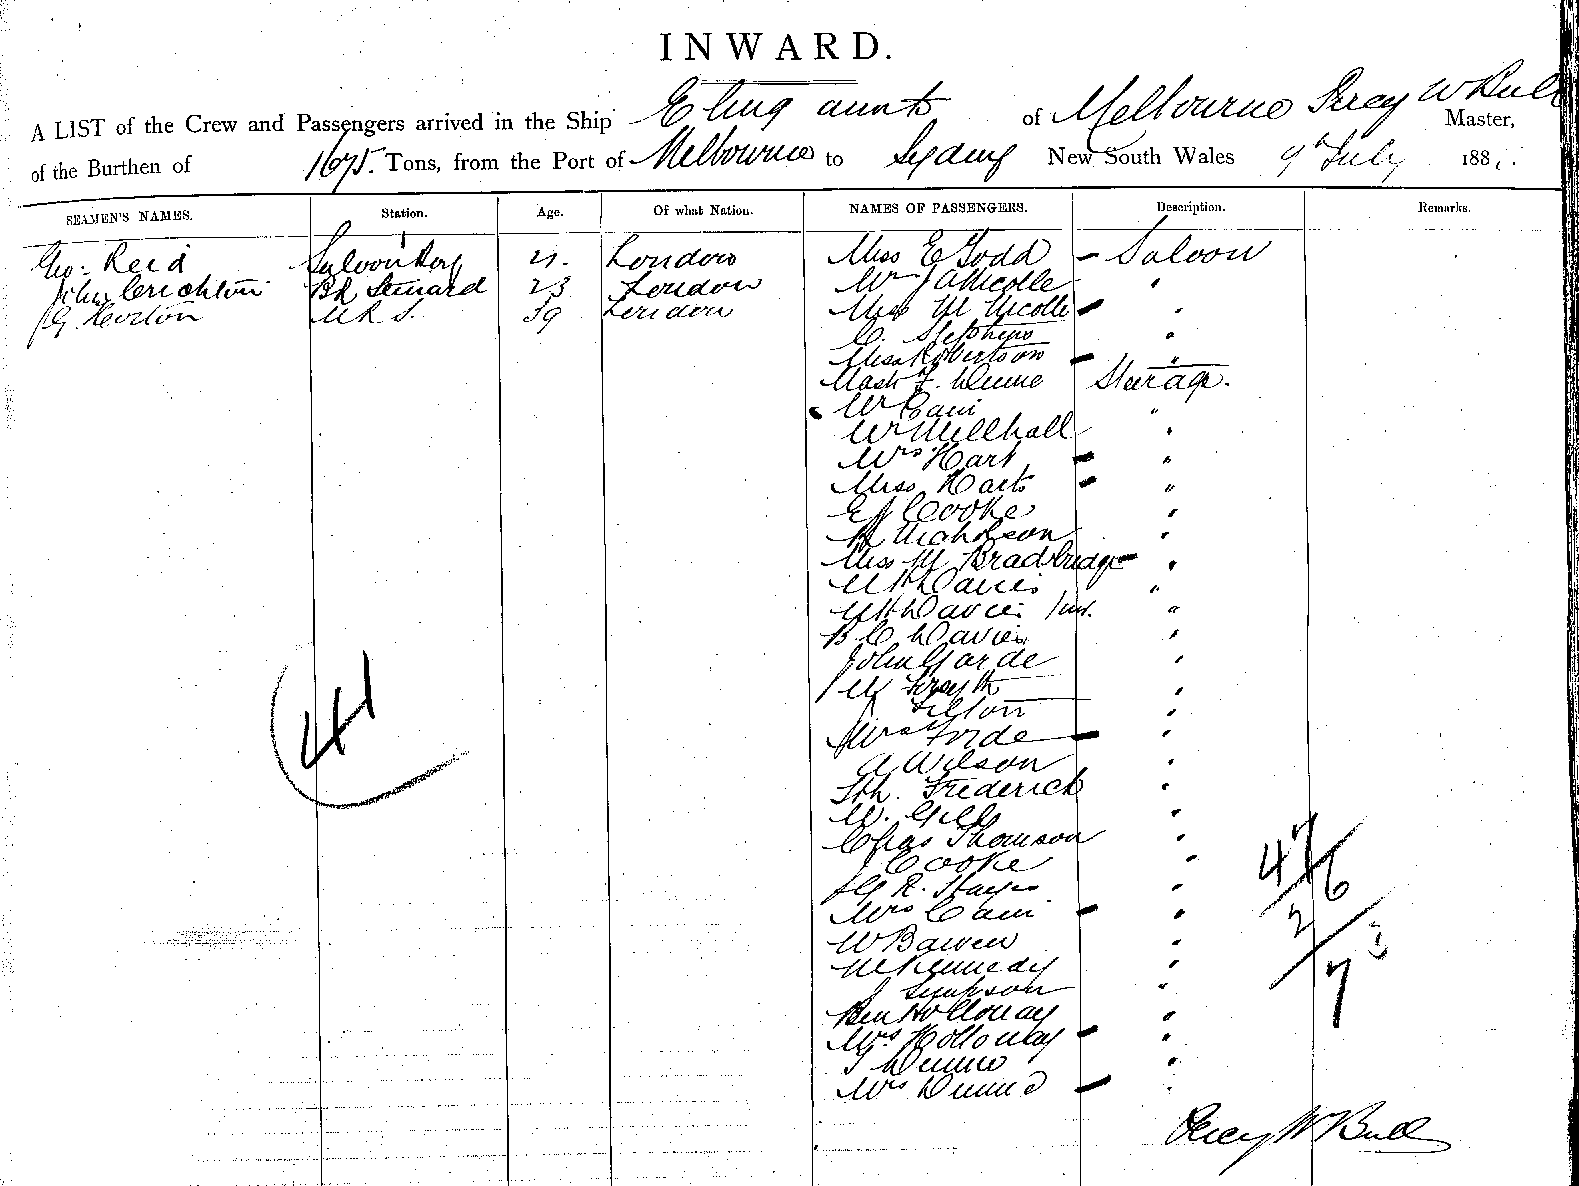 INWARD.
A LIST of the Crew and Passengers arrived in the Ship of Melbourne Percy W Bull Master,
of the Burthen of 1675. Tons, from the Port of Melbourne to Sydney New South Wales 9th July 188
SEAMEN'S NAMES. Station. Age. Of what Nation. NAMES OF PASSENGERS. Description. Remarks.
Geo: Reid Saloon Boy 21. London Miss E Todd - Saloon
John Crichton Bk Steward 23 London Mr J A Nicolle "
G. Horton U R S. 39 London Miss M Nicolle - "
C. Stephens "
Miss Robertson - "
Mast F. Dunne Steerage.
Mr Cain "
Mr Millhall "
Mrs Hart - "
Miss Hart - "
E J Cooke "
Nicholson "
Miss M Bradbridge - "
W H Davies "
W H Davies Jun. "
B. C. Davies "
John Garde "
W Forsyth "
J Tilton "
Mrs Forde - "
A Wilson "
Frederick "
W. Gill "
Chas Thomson "
J Cooke "
G R. Hayes "
Mrs Cain - "
W Bawen "
Kennedy "
J Simpson "
Ben Holloway "
Mrs Holloway - "
J Dunne "
Mrs Dunne - "
41
47/6
2/7
Percy W Bull